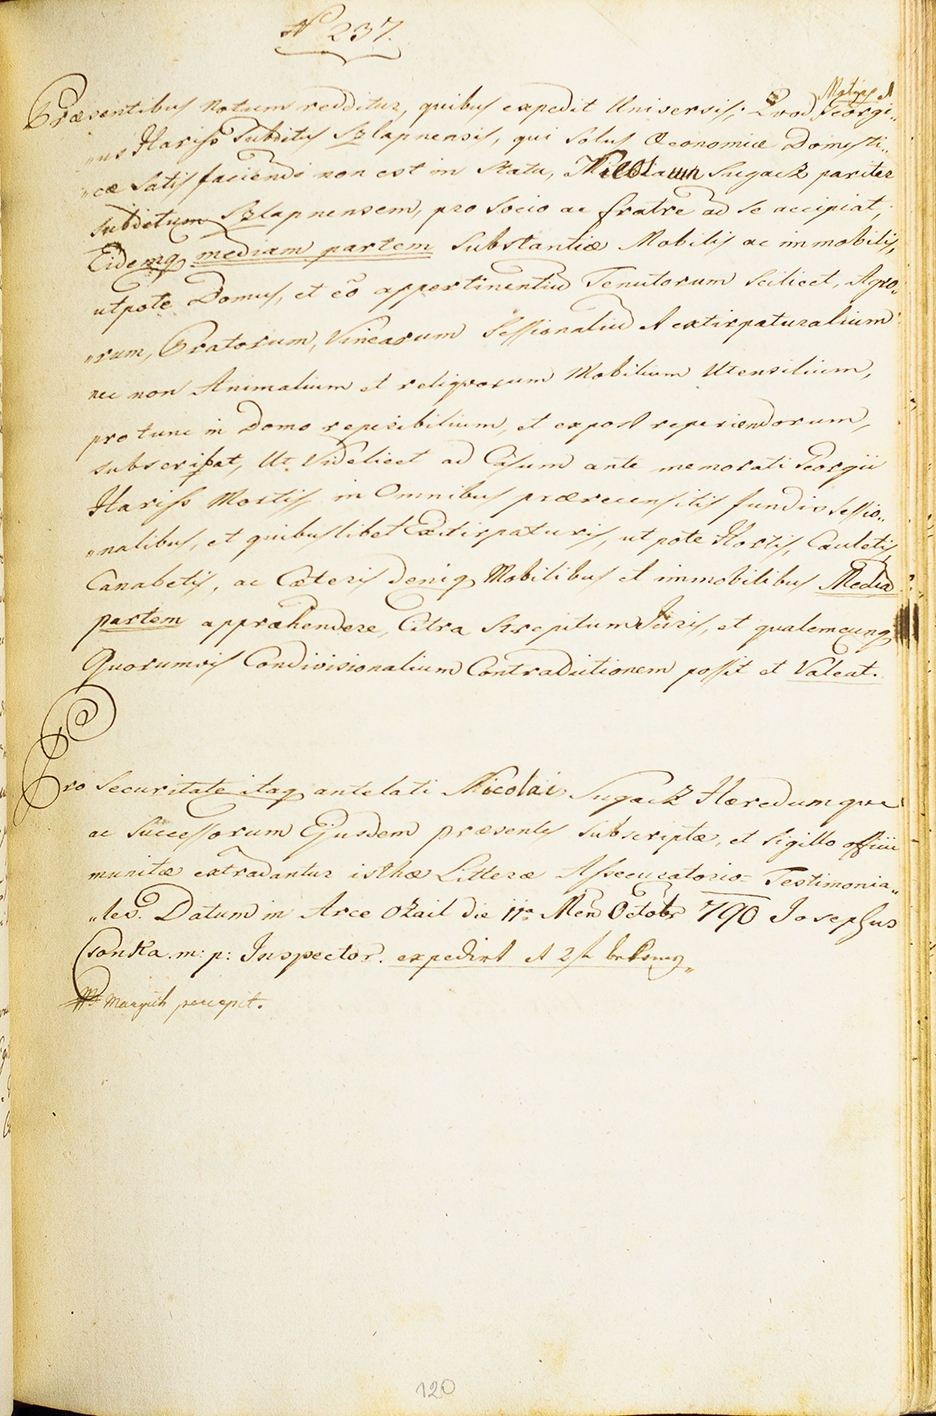 N 237.
Præsentibus notum redditur, quibus expedit Universis; Quod Georgi„
„us Hariss Subditus Szlapnensis, qui Solus Œconomiæ Domesti„
„cæ Satisfaciendi non est in Statu, Nicolaum Sugack pariter
Subditum Szlapnensem, pro Socio ac fratre ad se accipiat,
Eidemq mediam partem Substantiæ Mobilis ac immobilis,
utpote Domus, et eo appertinentiu Tenutorum Scilicet, Agro„
„rum, Pratorum, Vinearum Sessionaliu et extirpaturalium
nec non Animalium et reliquorum Mobilium Utensilium,
pro tunc in Domo repisibilium, et expost reperiendorum,
subscribat, Ut Videlicet ad Casum ante memorati Georgii
Hariss Mortis, in Omnibus prærecensitis fundis sessio„
„nalibus, et quibuslibet Extirpaturis, ut pote Hortis, Cauletis
Canabetis, ac Cæteris deniq Mobilibus et immobilibus Media
partem appræhendere, Citra Strepitum Juris, et qualemcunq
Quorumvis Condivisionalium Contradictionem possit et Valeat.
Pro Securitate itaq antelati Nicolai Sugack Hæredumque
ac Successorum Ejusdem præsentes subscriptæ, et Sigillo officii
munitæ extradantur isthæ Litteræ Assecuratorio Testimonia„
„les. Datum in Arce Ozail die 11a Men Octobr 790 Josephus
Csonka. m: p: Inspector. expedirt et 2 f
Margich percepit.
120